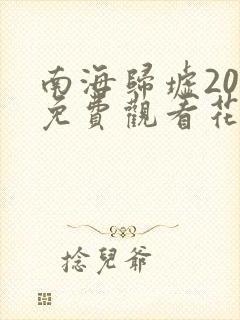 南海歸墟20
免費觀看花
捻兒爺